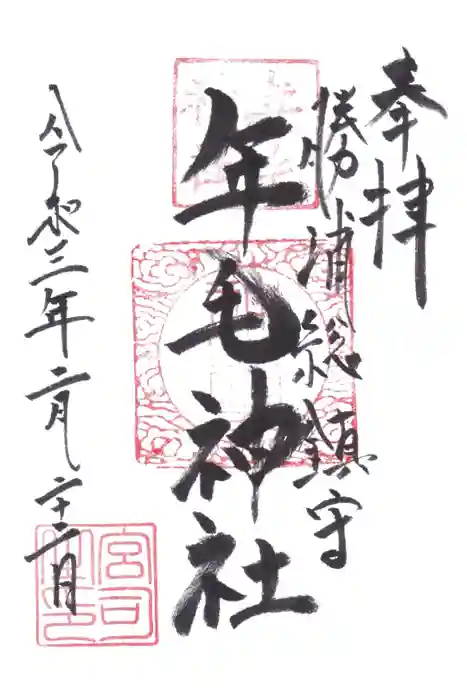 奉拝
勝浦総鎮守
年毛神社
令和三年二月二十二日
宮司